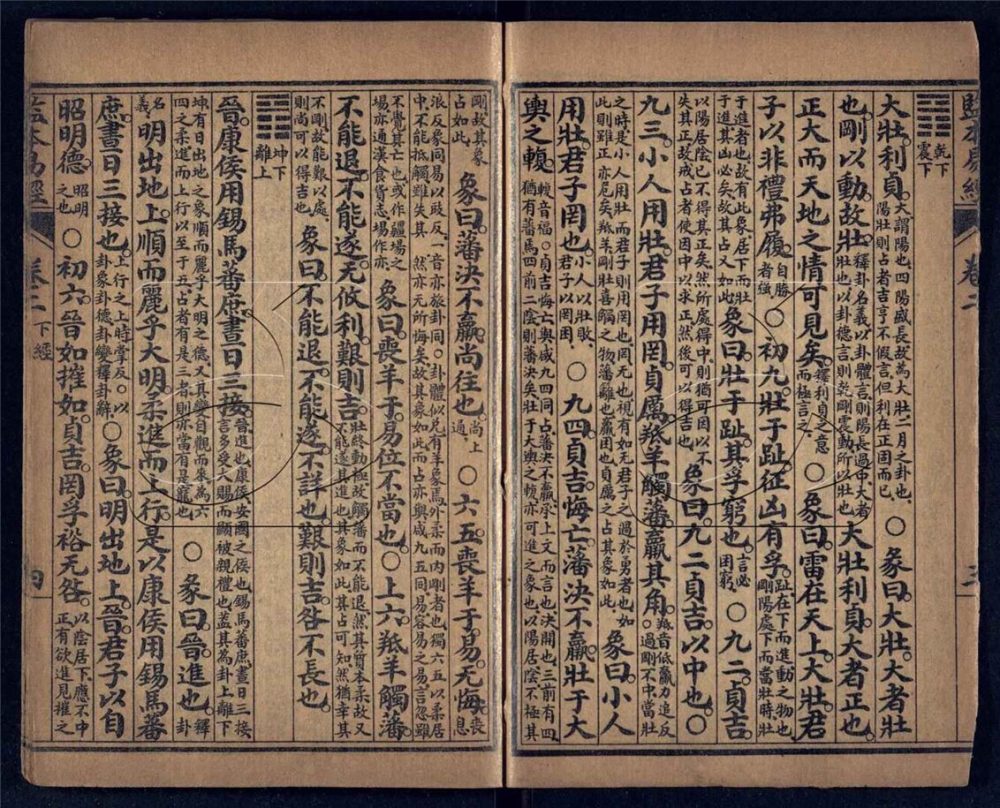 監本易經 卷二 三
乾下震上
大壯。利貞。大謂陽也四陽盛長故為大壯二月之卦也陽壯則占者吉亨不假言但利在正固而已 ○彖曰。大壯。大者壯
也。剛以動。故壯。釋卦名義以卦體言則陽長過中大者壯也以卦德言則乾剛震動所以壯也 大壯利貞。大者正也。
正大而天地之情可見矣。釋利貞之意而極言之 ○象曰。雷在天上。大壯。君
子以非禮弗履。自勝者強 ○初九。壯于趾。征凶有孚。趾在下而進動之物也剛陽處下而當壯時壯
于進者也故有此象居下而壯于進其凶必矣故其占又如此 象曰。壯于趾。其孚窮也。言必困窮 ○九二。貞吉。
以陽居陰已不得其正矣然所處得中則猶可因以不失其正故戒占者使因中以求正然後可以得吉也 象曰。九二貞吉。以中也。○
九三。小人用壯。君子用罔。貞厲。羝羊觸藩。羸其角。羝音低羸力追反○過剛不中當壯
之時是小人用壯而君子則用罔也罔无也視有如无君子之過於勇者也如此則雖正亦危矣羝羊剛壯喜觸之物藩離也羸困也貞厲之占其象如此 象曰。小人
用壯。君子罔也。小人以壯敗君子以罔困 ○九四。貞吉。悔亡。藩決不羸。壯于大
輿之輹。輹音福○貞吉悔亡與咸九四同占藩決不羸承上文而言也決開也三前有四猶有藩焉四前二陰則藩決矣壯于大輿之輹亦可進之象也以陽居陰不極其
剛故其象占如此 象曰。藩決不羸。尚往也。尚上通 ○六五。喪羊于易。无悔。喪息
浪反象同易以豉反一音亦旅卦同○卦體似兌有羊象焉外柔而內剛者也獨六五以柔居中不能抵觸雖失其然亦无所悔矣故其象如此而占亦與咸九五同易容易之易言忽
不覺其亡也或作疆場之場亦通漢食貨志場作亦 象曰。喪羊于易。位不當也。○上六。羝羊觸藩。
不能退。不能遂。无攸利。艱則吉。壯終動極故觸藩而不能退然其質本柔故又不能遂其進也其象如此其占可知然猶幸其
不剛故能艱以處則尚可以得吉也 象曰。不能退。不能遂。不詳也。艱則吉。咎不長也。
坤下離上
晉。康侯用錫馬蕃庶。晝日三接。晉進也康侯安國之侯也錫馬蕃庶晝日三接言多受大賜而顯被親禮也蓋其為卦上離下
坤有日出地上之象順而麗乎大明之德又其變自觀而來為六四之柔進而上行以至于五占者有是三者則亦當有是寵也 ○彖曰。晉。進也。釋卦
名義 明出地上。順而麗乎大明。柔進而上行。是以康侯用錫馬蕃
庶。晝日三接也。上行之上時掌反○以卦象卦德卦變釋卦辭 ○象曰。明出地上。晉。君子以自
昭明德。昭明之也 ○初六。晉如摧如。貞吉。罔孚。裕无咎。以陰居下應不中正有欲進見摧之
監本易經 卷二 下經 四